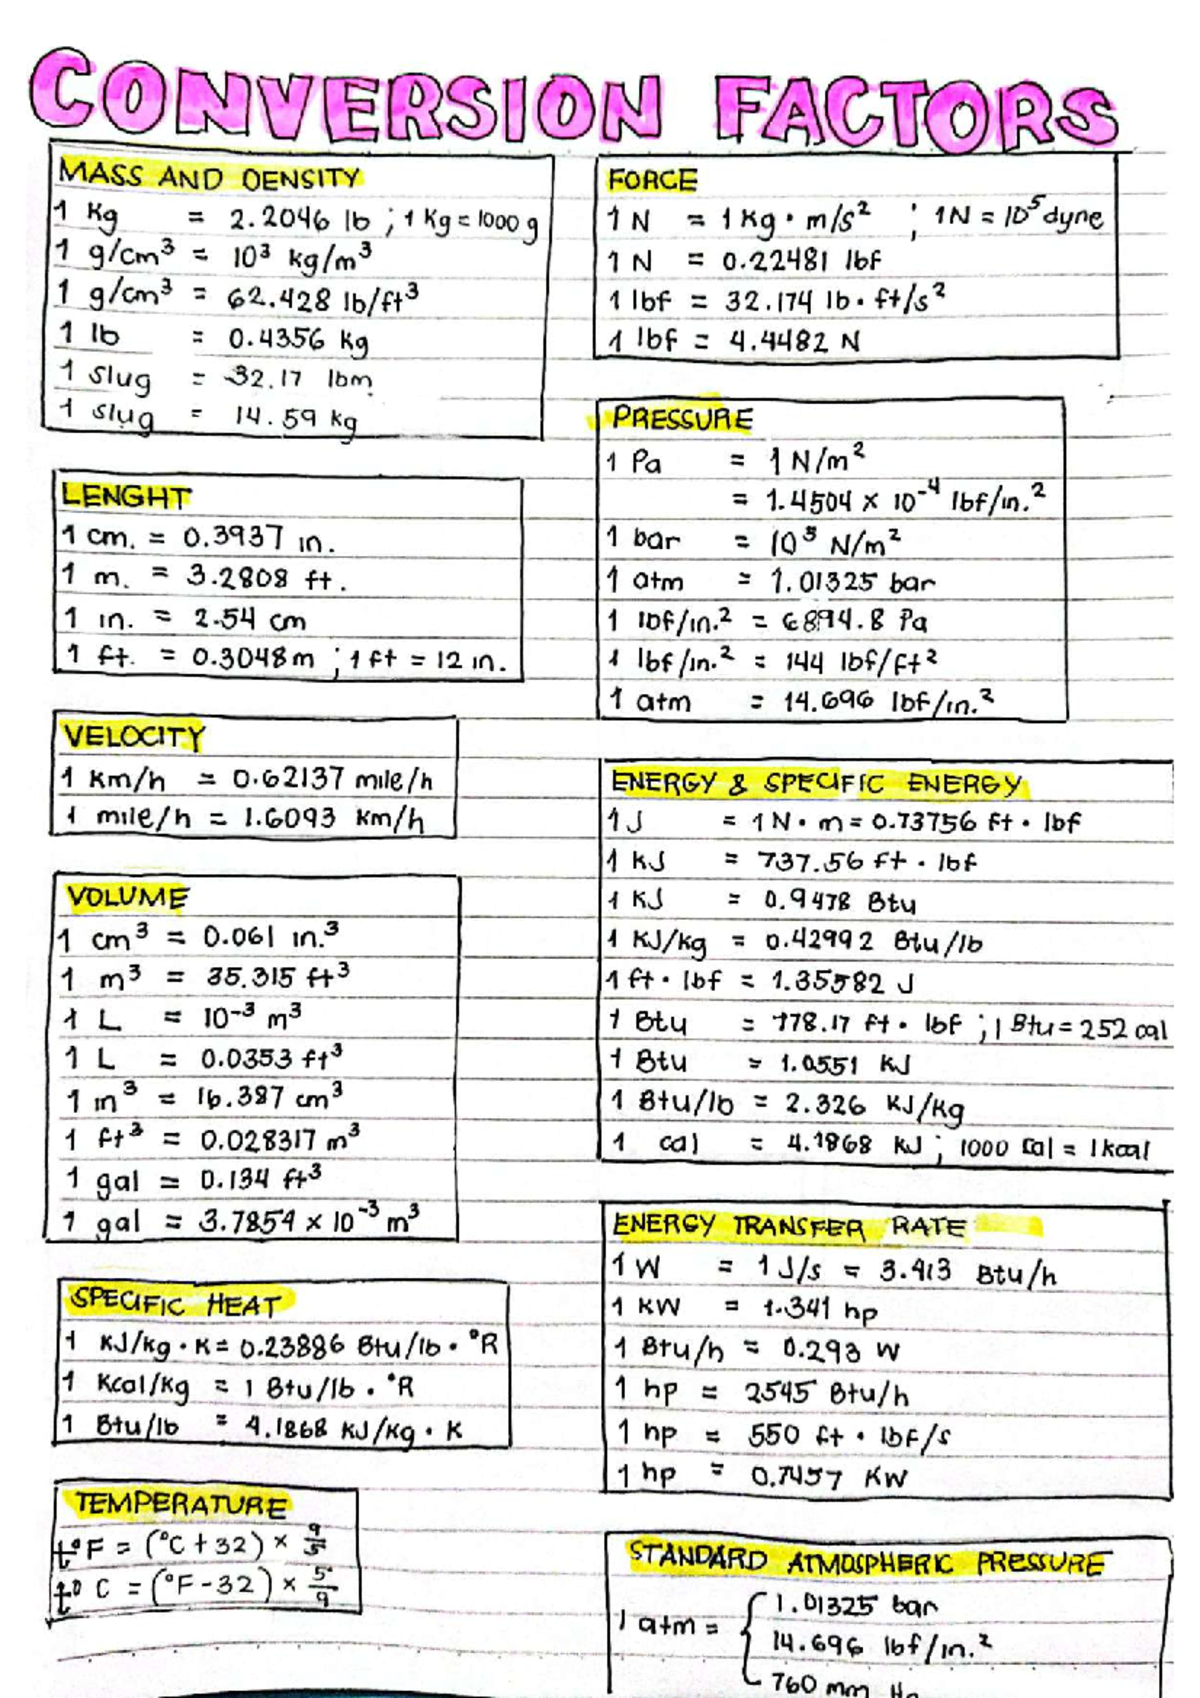 CONVERSION FACTORS
MASS AND DENSITY
1 Kg = 2.2046 lb ; 1 Kg = 1000 g
1 g/cm³ = 10³ kg/m³
1 g/cm³ = 62.428 lb/ft³
1 lb = 0.4356 kg
1 slug = 32.17 lbm
1 slug = 14.59 kg
LENGHT
1 cm. = 0.3937 in.
1 m. = 3.2808 ft.
1 in. = 2.54 cm
1 ft. = 0.3048 m ; 1 ft = 12 in.
VELOCITY
1 km/h = 0.62137 mile/h
1 mile/h = 1.6093 km/h
VOLUME
1 cm³ = 0.061 in.³
1 m³ = 35.315 ft³
1 L = 10⁻³ m³
1 L = 0.0353 ft³
1 in³ = 16.387 cm³
1 ft³ = 0.028317 m³
1 gal = 0.134 ft³
1 gal = 3.7854 × 10⁻³ m³
SPECIFIC HEAT
1 KJ/kg · K = 0.23886 Btu/lb · °R
1 Kcal/kg = 1 Btu/lb · °R
1 Btu/lb = 4.1868 KJ/Kg · K
TEMPERATURE
t°F = (°C + 32) × 9/5
t° C = (°F - 32) × 5/9
FORCE
1 N = 1 Kg · m/s² ; 1N = 10⁵ dyne
1 N = 0.22481 lbf
1 lbf = 32.174 lb · ft/s²
1 lbf = 4.4482 N
PRESSURE
1 Pa = 1 N/m²
= 1.4504 × 10⁻⁴ lbf/in.²
1 bar = 10⁵ N/m²
1 atm = 1.01325 bar
1 lbf/in.² = 6894.8 Pa
1 lbf/in.² = 144 lbf/ft²
1 atm = 14.696 lbf/in.²
ENERGY & SPECIFIC ENERGY
1 J = 1 N · m = 0.73756 ft · lbf
1 KJ = 737.56 ft · lbf
1 KJ = 0.9478 Btu
1 KJ/kg = 0.42992 Btu/lb
1 ft · lbf = 1.35582 J
1 Btu = 778.17 ft · lbf ; 1 Btu = 252 cal
1 Btu = 1.0551 KJ
1 Btu/lb = 2.326 KJ/Kg
1 cal = 4.1868 KJ ; 1000 cal = 1 kcal
ENERGY TRANSFER RATE
1 W = 1 J/s = 3.413 Btu/h
1 KW = 1.341 hp
1 Btu/h = 0.293 W
1 hp = 2545 Btu/h
1 hp = 550 ft · lbf/s
1 hp = 0.7457 KW
STANDARD ATMOSPHERIC PRESSURE
1 atm = { 1.01325 bar
14.696 lbf/in.²
760 mm Hg